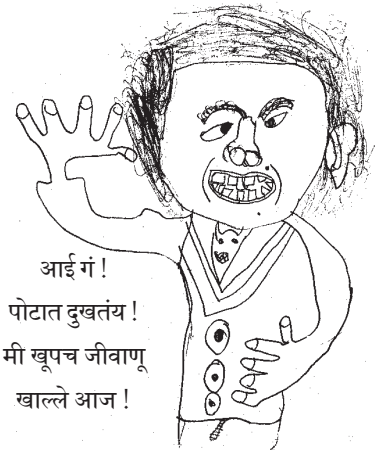 आई गं !
पोटात दुखतंय !
मी खूपच जीवाणू
खाल्ले आज !